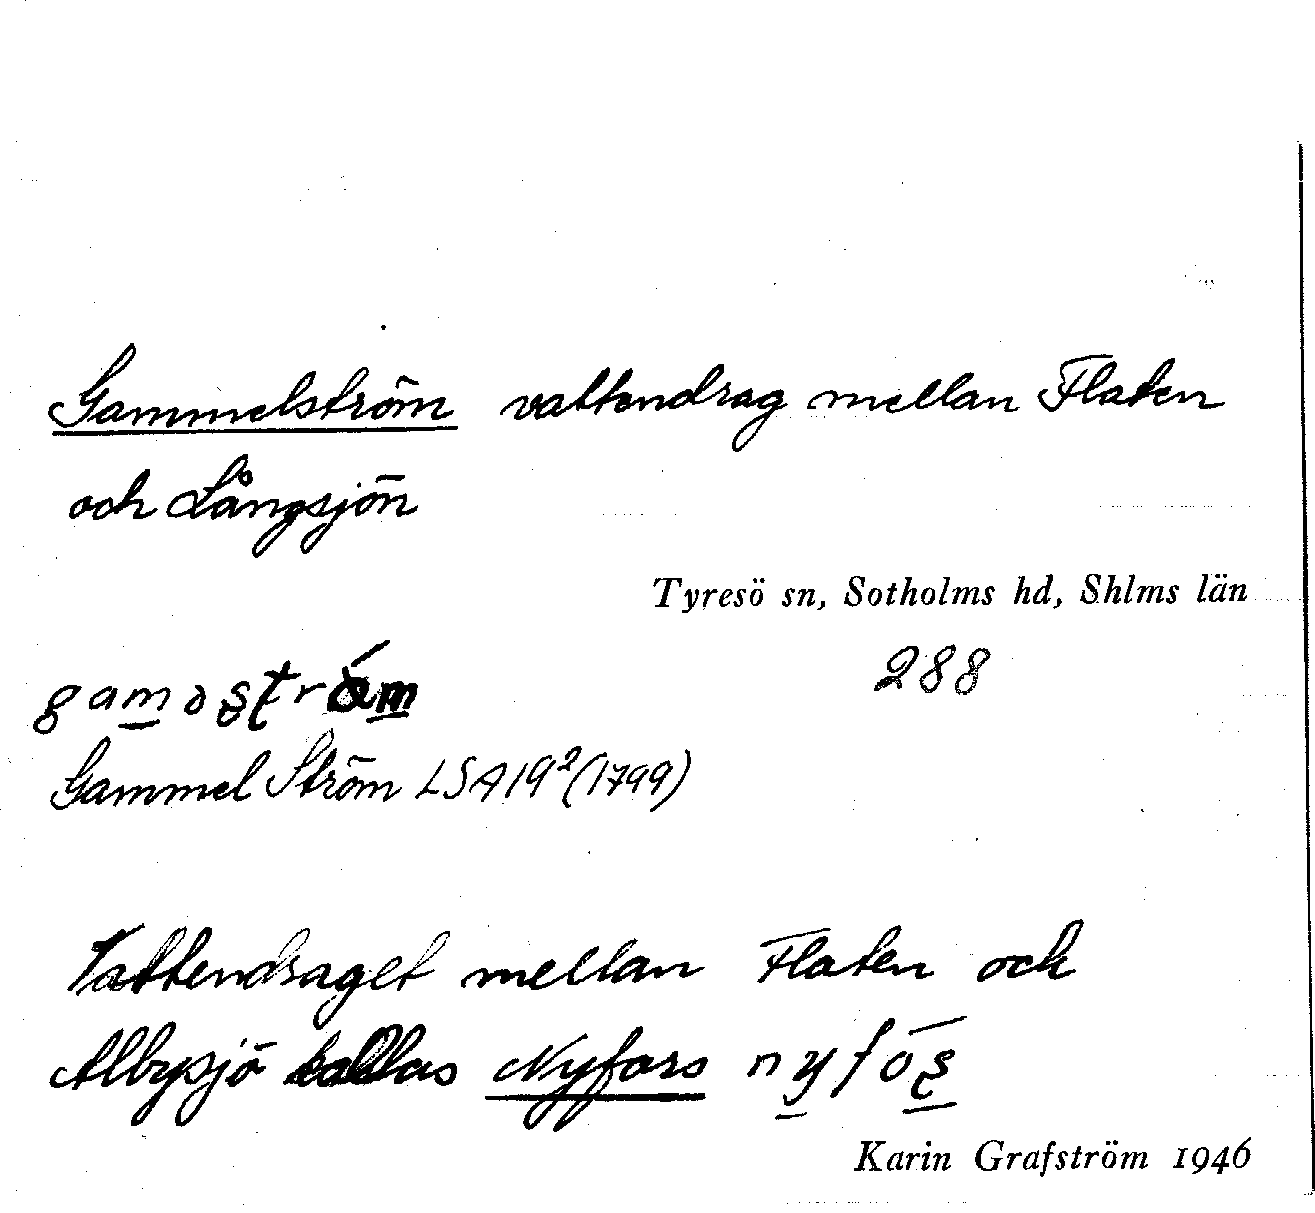 Gammelström vattendrag mellan Flaten
och Långsjön
Tyresö sn, Sotholms hd, Shlms län
288
Gammel Ström LSA 19² (1799)
Vattendraget mellan Flaten och
Albysjö kallas Nyfors
Karin Grafström 1946